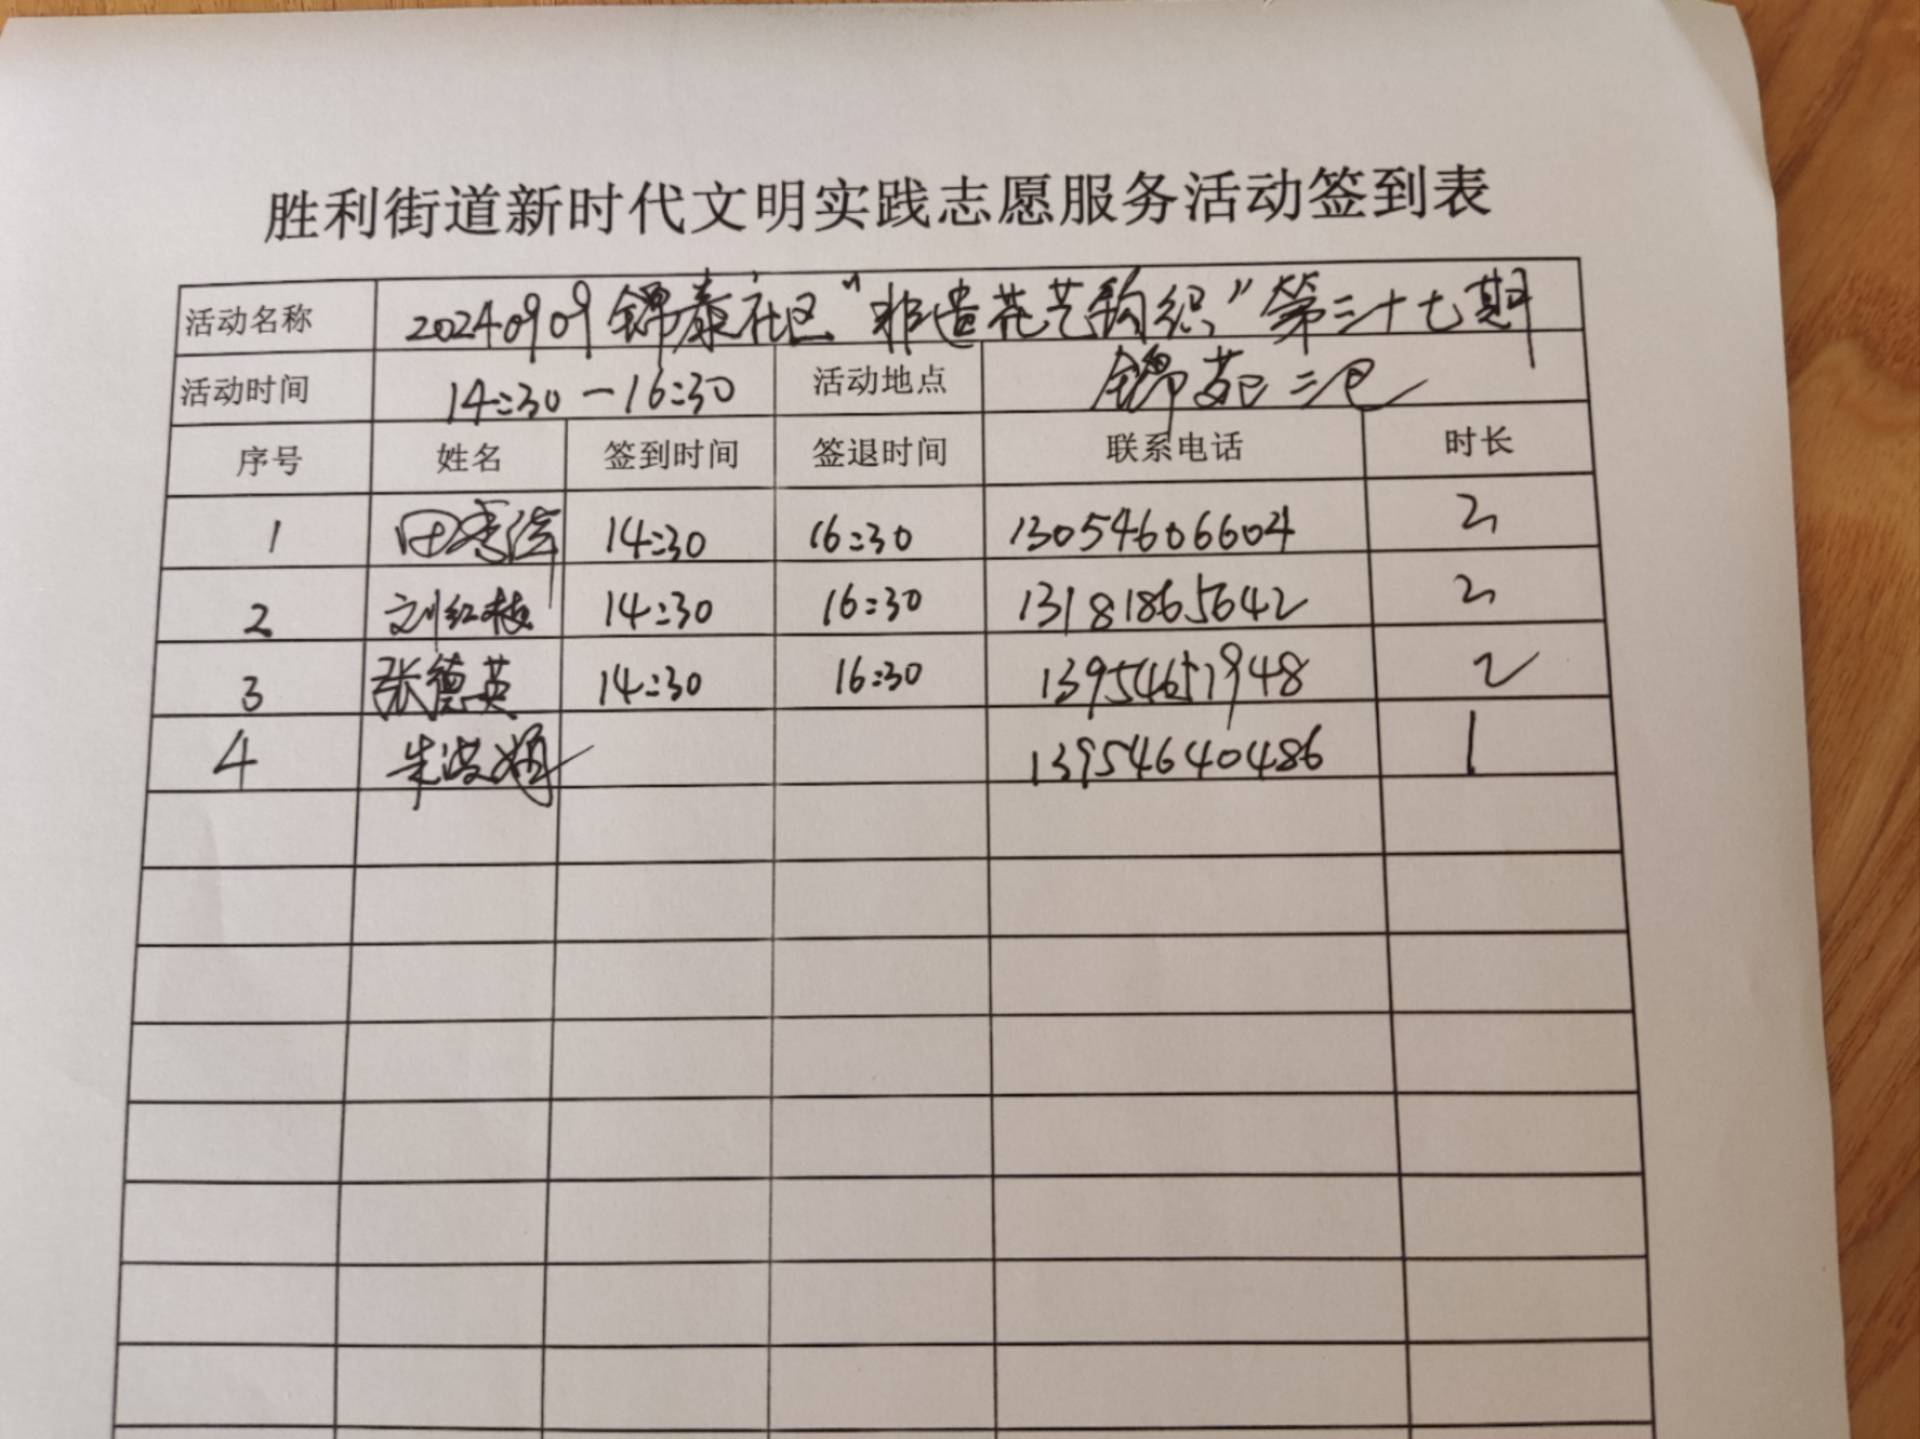 胜利街道新时代文明实践志愿服务活动签到表
活动名称 20240909锦泰社区“非遗花艺钩织”第三十七期
活动时间 14:30-16:30 活动地点 锦苑二区
序号 姓名 签到时间 签退时间 联系电话 时长
1 田 14:30 16:30 13054606604 2
2 刘红梅 14:30 16:30 13181865642 2
3 张德英 14:30 16:30 13954651948 2
4 朱波娟 13954640486 1